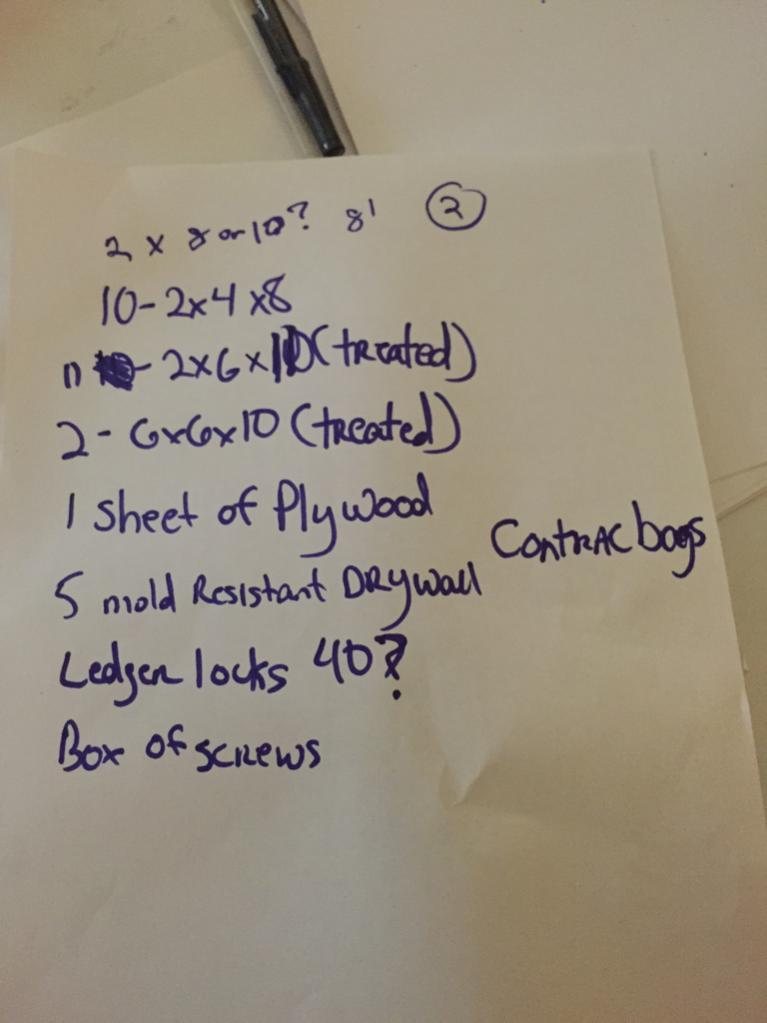 2 x 8 or 10? 8' 2
10 - 2x4 x8
11 - 2x6x10 (treated)
2 - 6x6x10 (treated)
1 sheet of Plywood
Contrac bags
5 mold Resistant DRywall
Ledger locks 40?
Box of screws